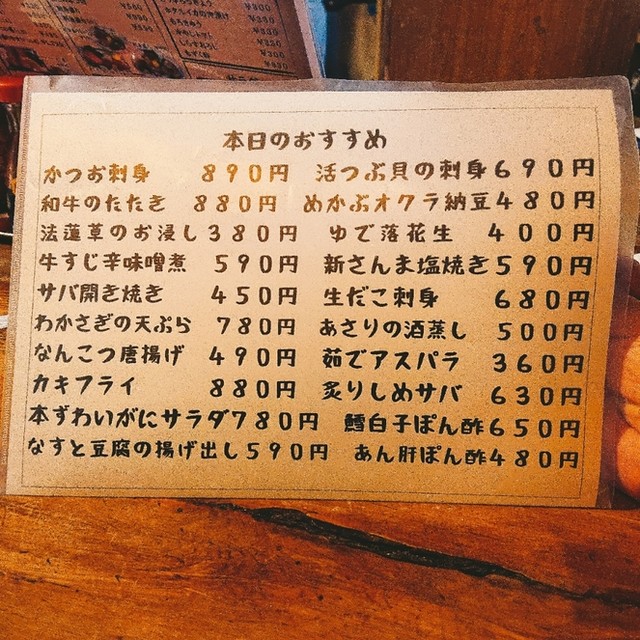 本日のおすすめ
かつお刺身 890円 活つぶ貝の刺身690円
和牛のたたき 880円 めかぶオクラ納豆480円
法蓮草のお浸し380円 ゆで落花生 400円
牛すじ辛味噌煮 590円 新さんま塩焼き590円
サバ開き焼き 450円 生だこ刺身 680円
わかさぎの天ぷら 780円 あさりの酒蒸し 500円
なんこつ唐揚げ 490円 茹でアスパラ 360円
カキフライ 880円 炙りしめサバ 630円
本ずわいがにサラダ780円 鱈白子ぽん酢650円
なすと豆腐の揚げ出し590円 あん肝ぽん酢480円